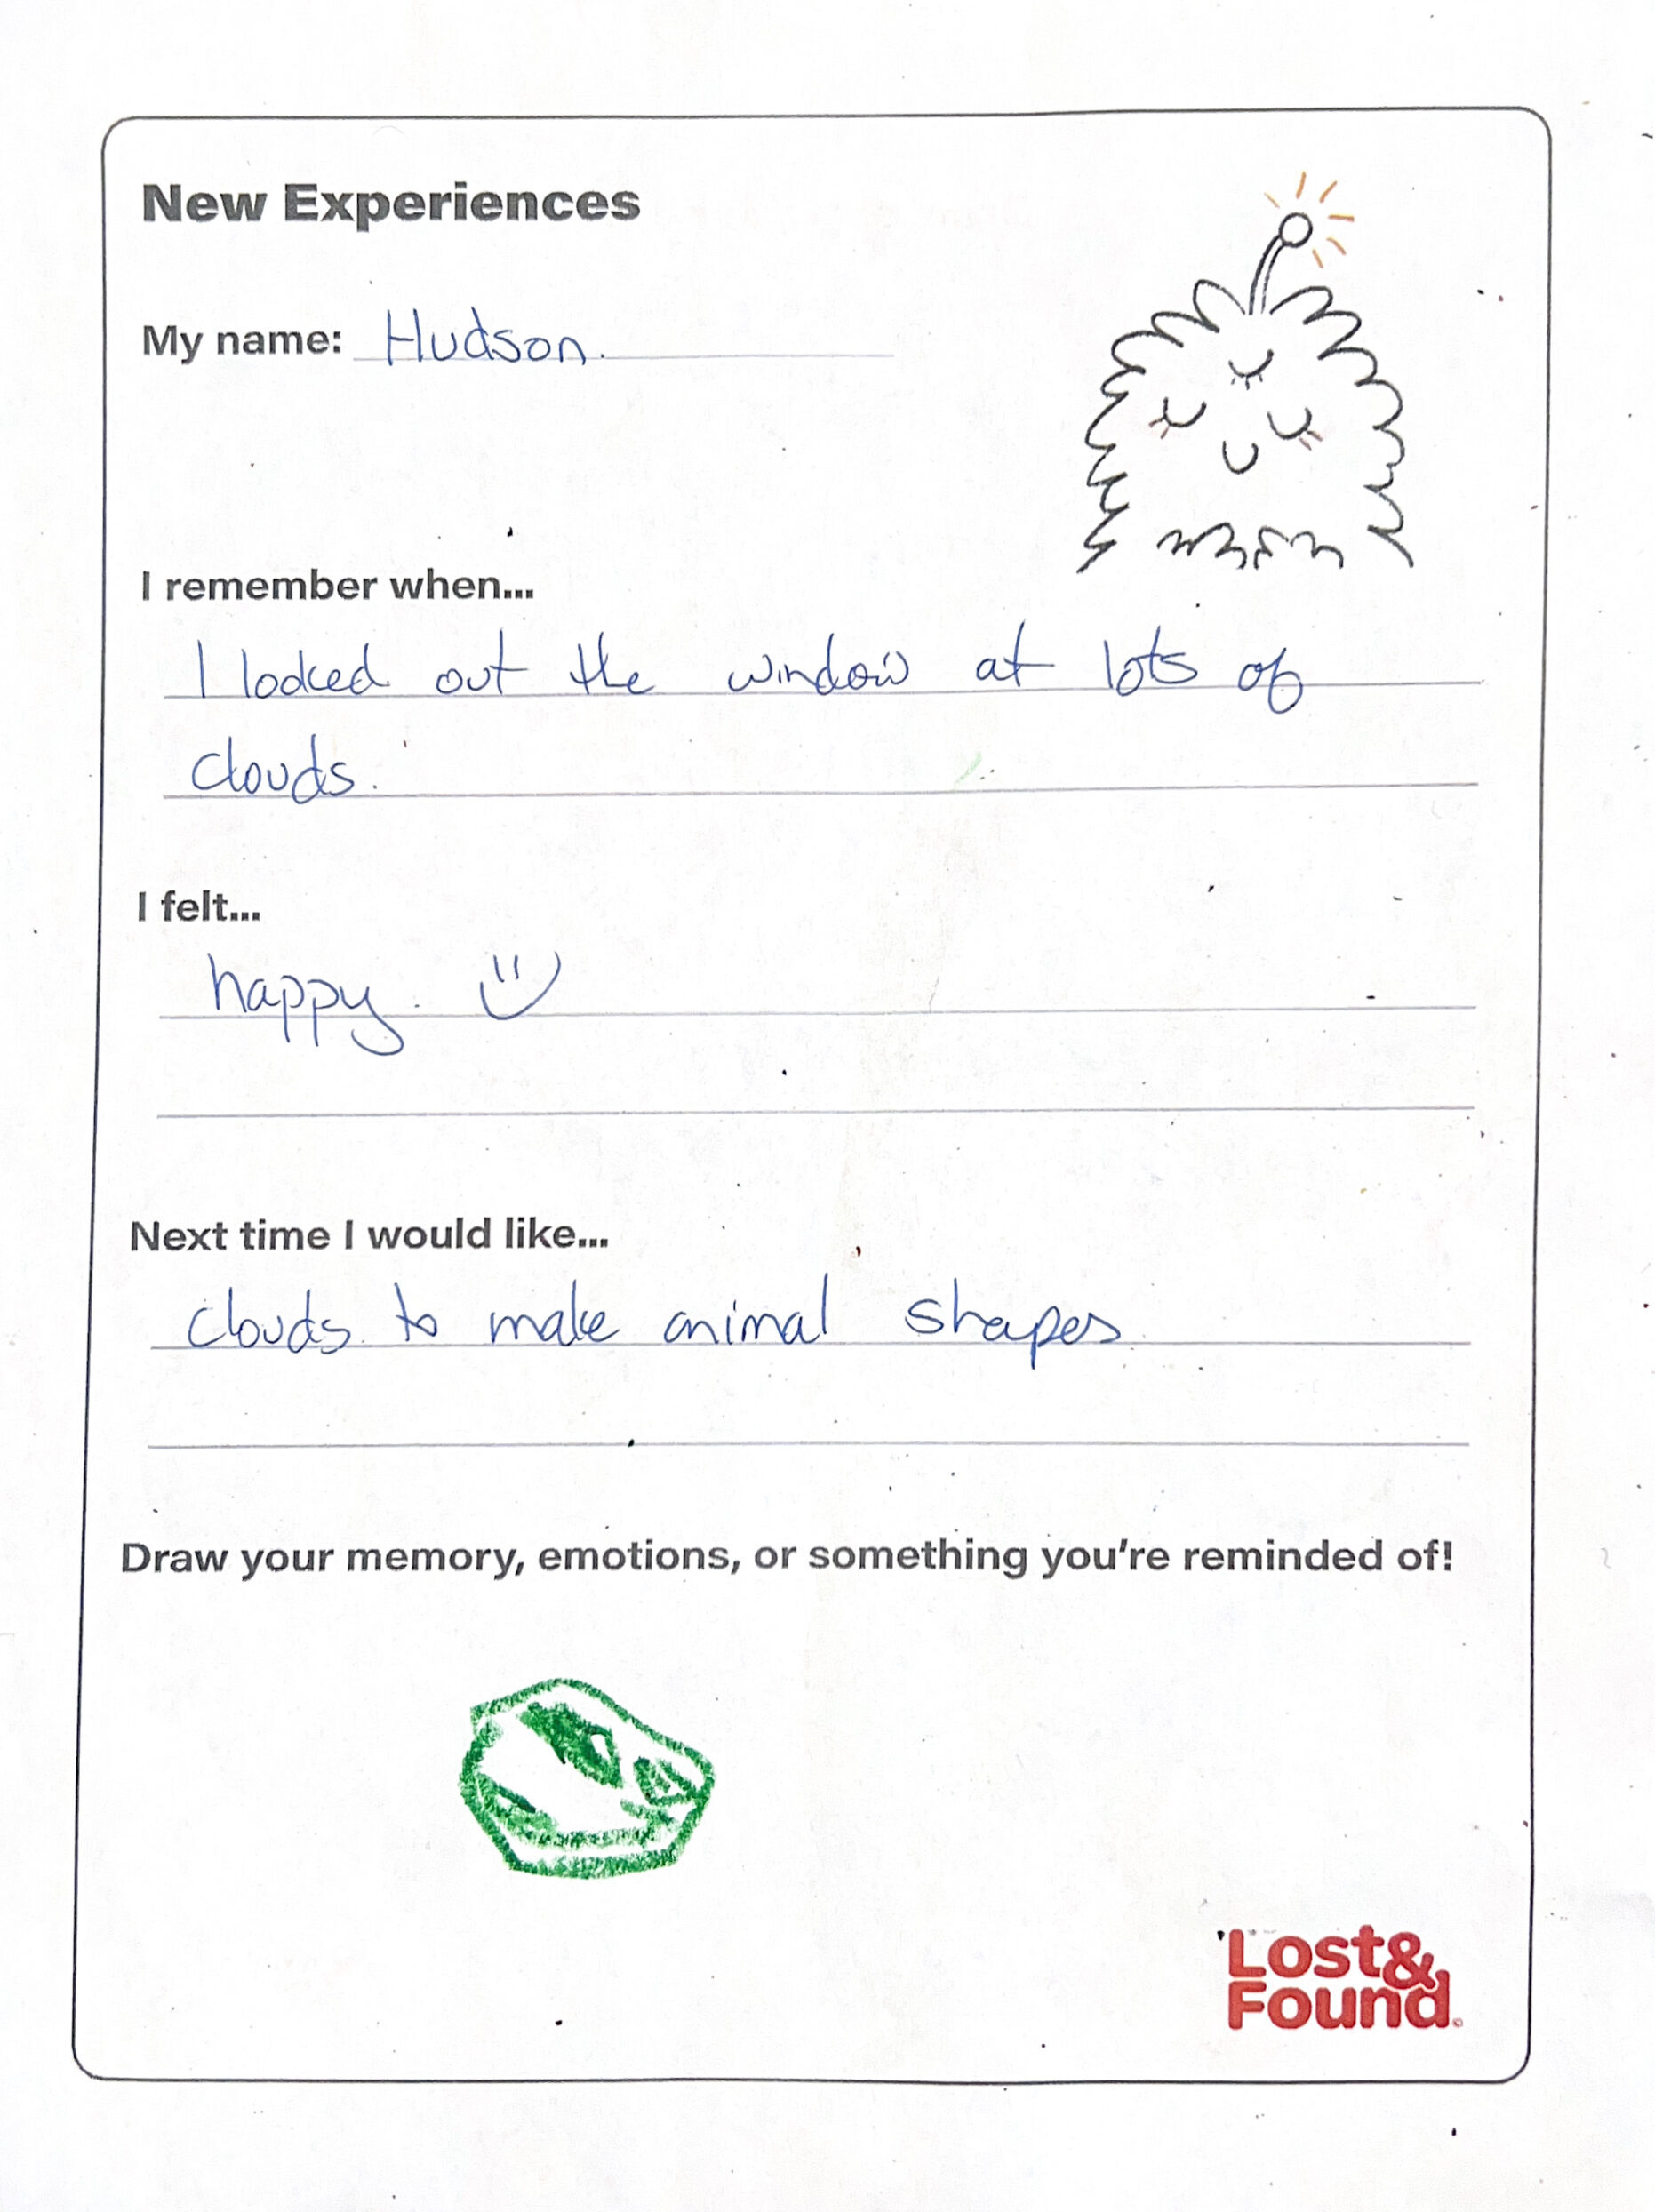 New Experiences
My name: Hudson.
I remember when...
I looked out the window at lots of
clouds.
I felt...
happy. :)
Next time I would like...
clouds to make animal shapes
Draw your memory, emotions, or something you're reminded of!
Lost&
Found.